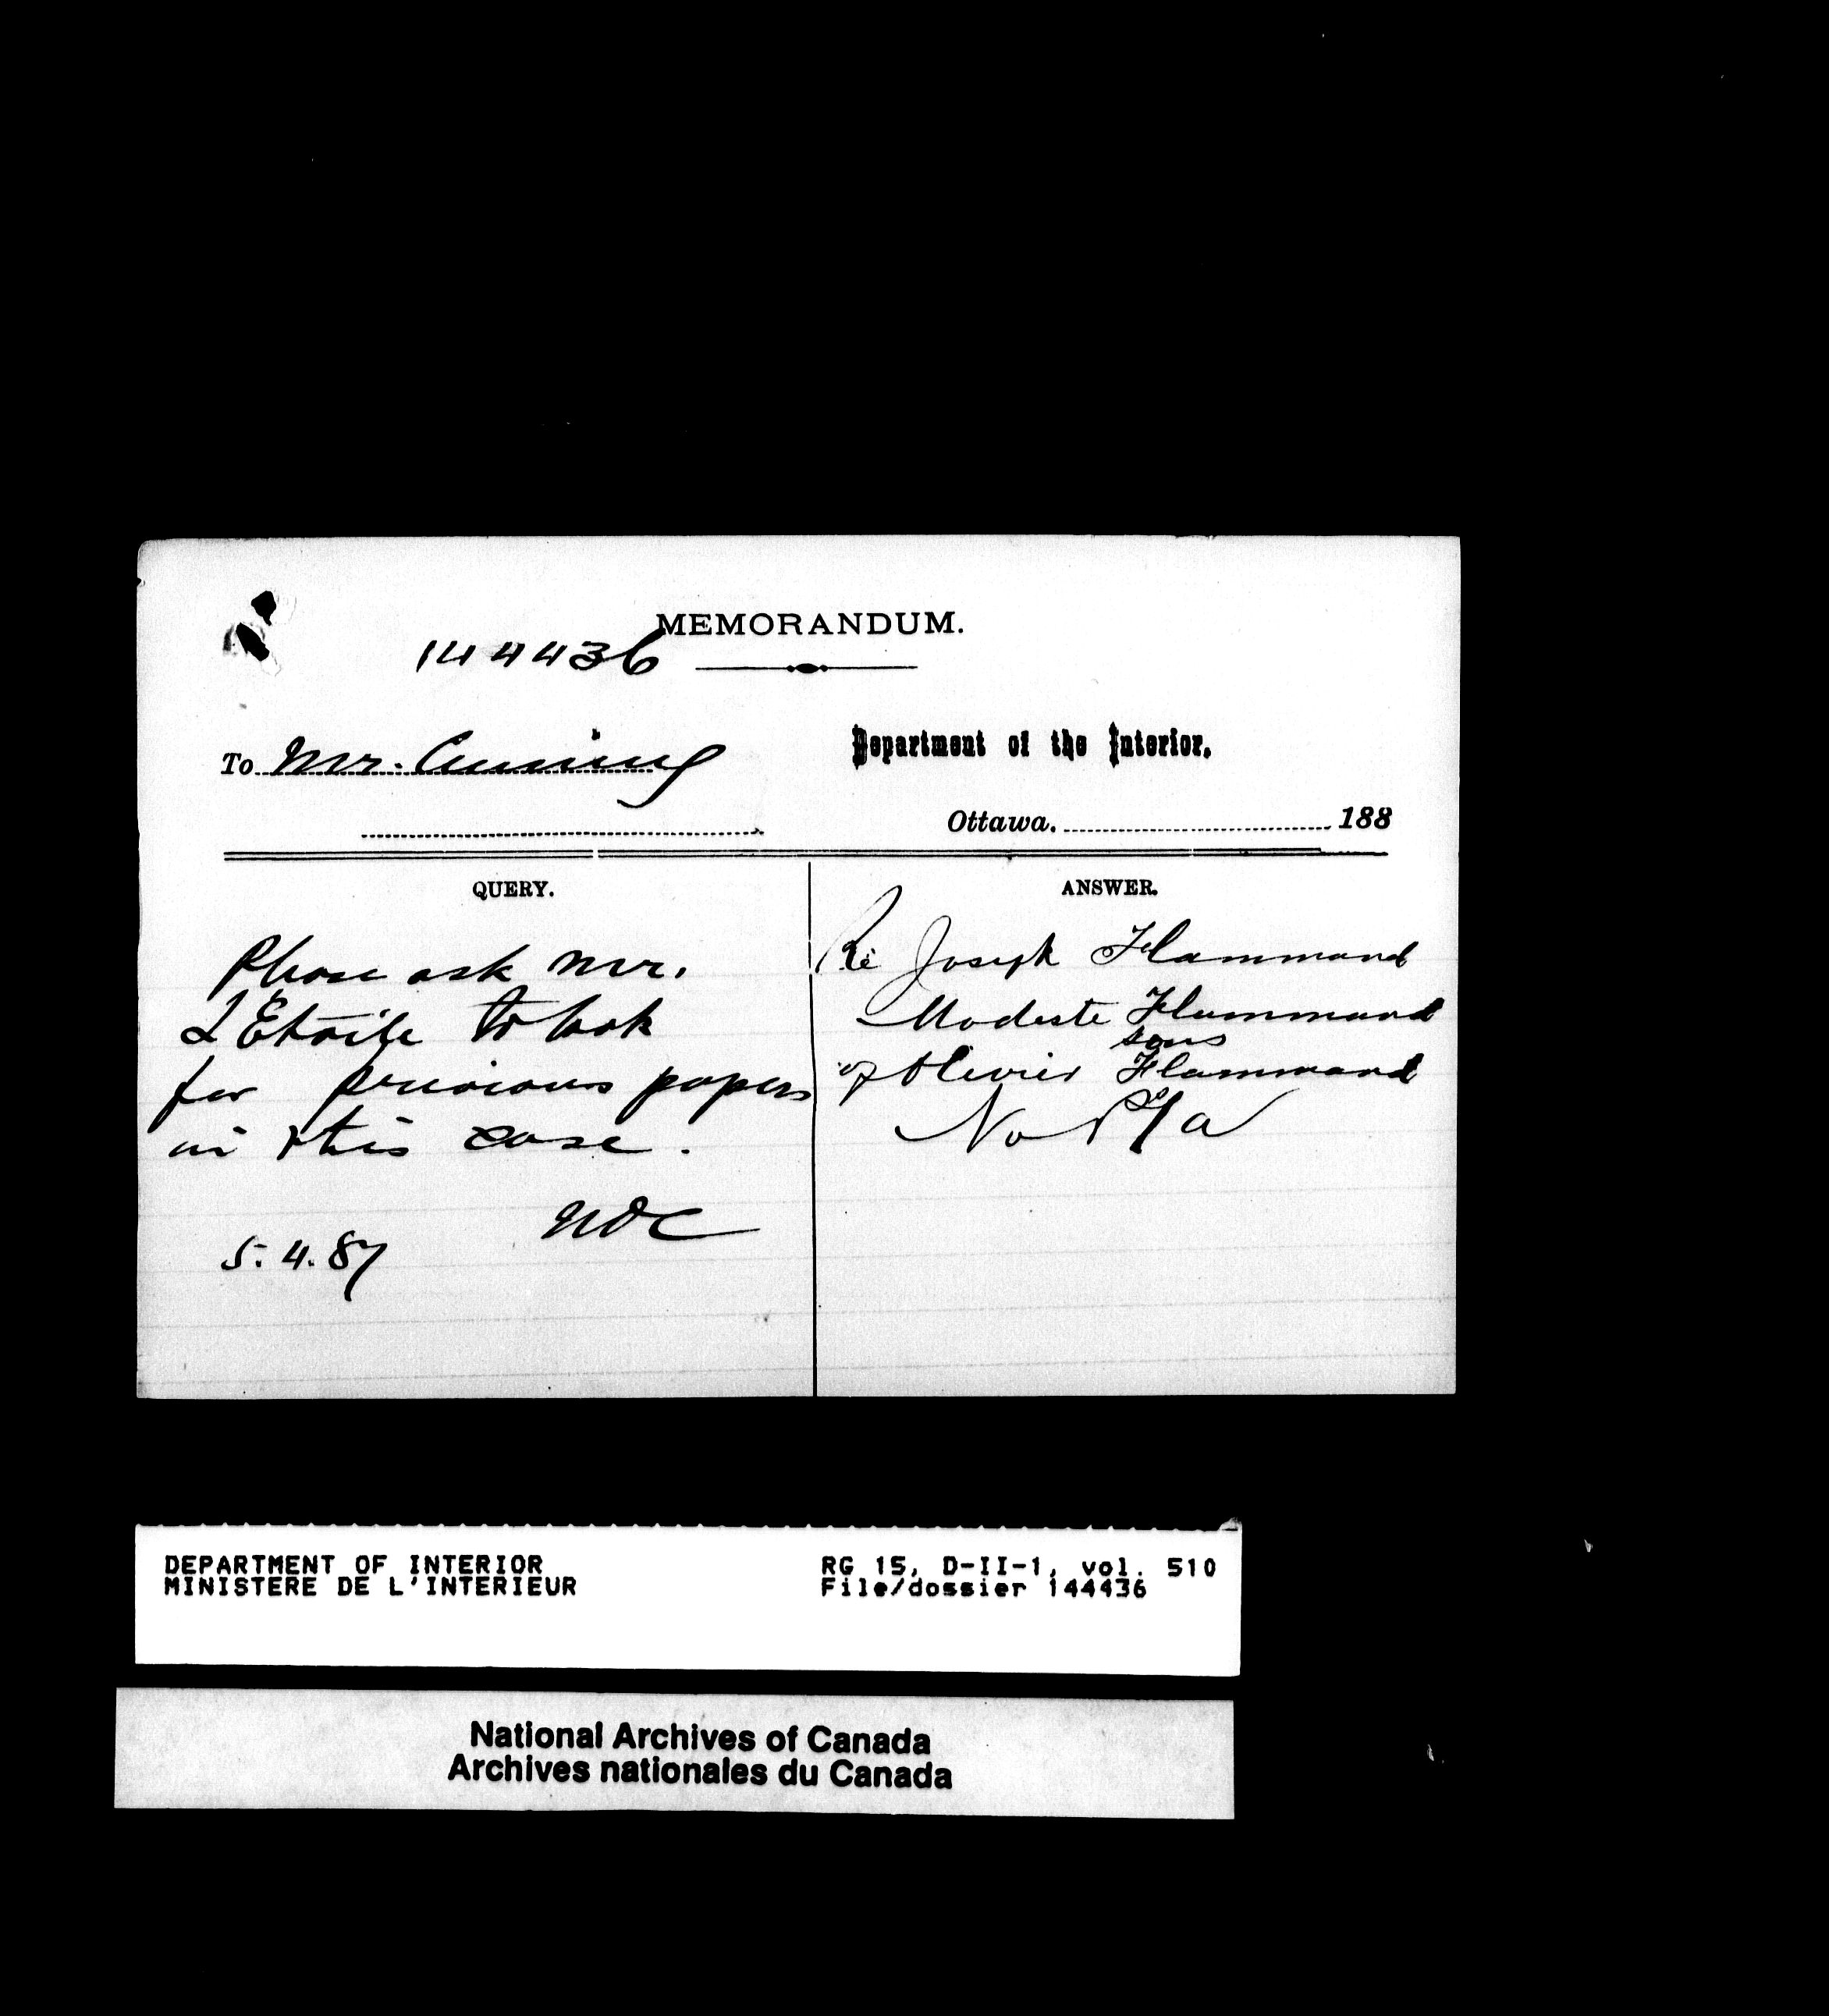 MEMORANDUM.
144436
To Mr.
Department of the Interior.
Ottawa. 188
QUERY.
Please ask Mr.
L'Etoile to look
for previous papers
in this case.
NOC
5.4.87
ANSWER.
Re Joseph Flammand
Modeste Flammand
sons
of Olivier Flammand
No
DEPARTMENT OF INTERIOR
MINISTERE DE L'INTERIEUR
RG 15, D-II-1, vol. 510
File/dossier 144436
National Archives of Canada
Archives nationales du Canada